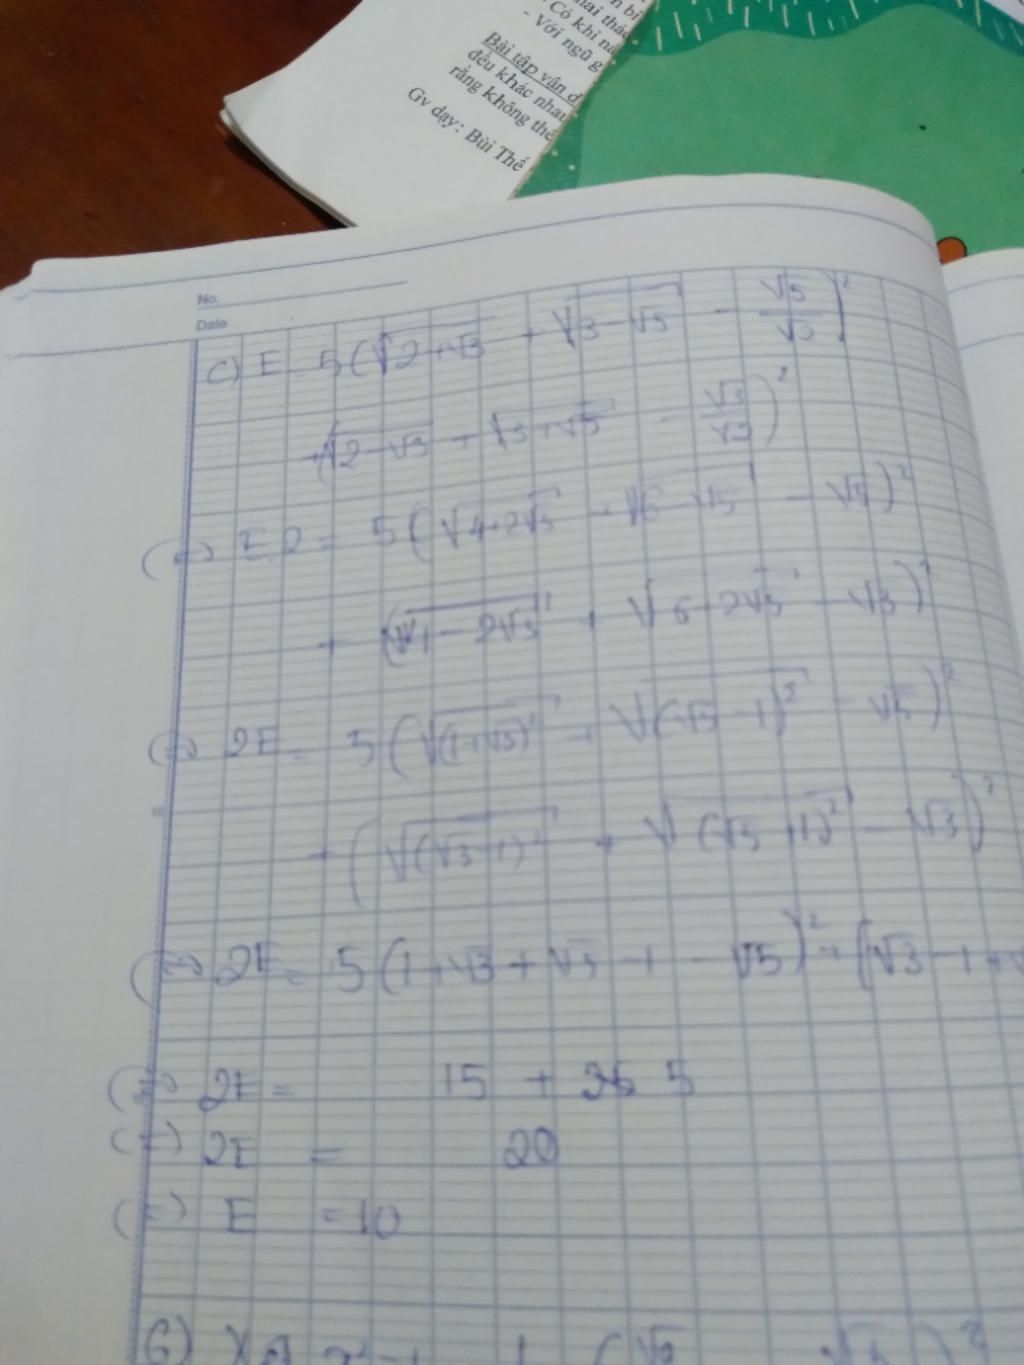 n bị
nai thác
. Có khi nà
- Với ngũ g
Bài tập vận d
đều khác nhau
rằng không thể
Gv dạy: Bùi Thế
No.
Date
c) E = 5(√(2+√3) + √(3-√5) - √5/√2)²
+(√(2-√3) + √(3+√5) - √3/√2)²
(=) E.2 = 5(√(4+2√3) + √(6-√5) - √5)²
+ (√(4-2√3) + √(6+2√5) - √3)²
(=) 2E = 5(√(1+√3)² + √(√5-1)² - √5)²
+ (√(√3-1)² + √(√5+1)² - √3)²
(=) 2E = 5(1+√3+√5-1-√5)²+(√3-1+√
(=) 2E = 15 + 5
(=) 2E = 20
(=) E = 10